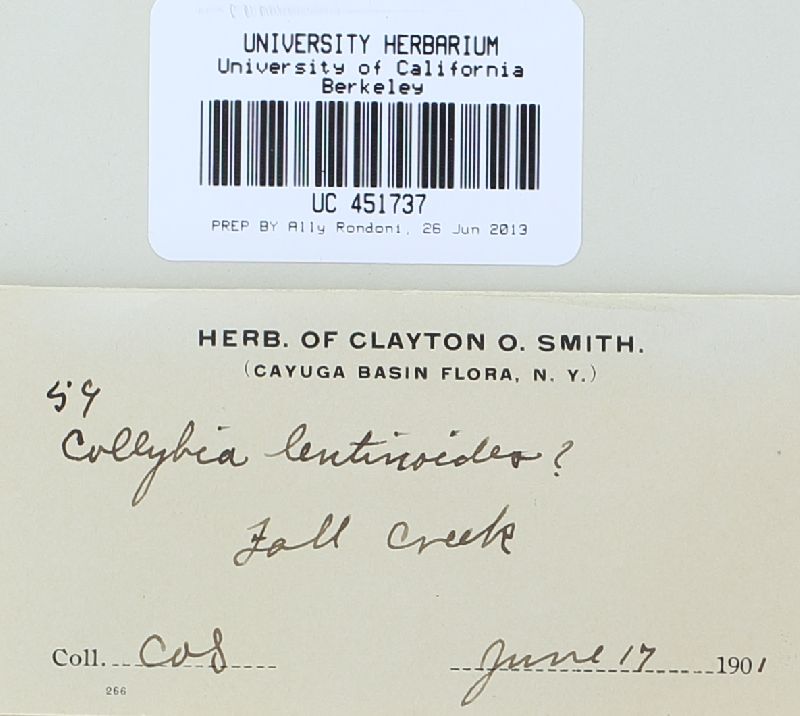 UNIVERSITY HERBARIUM
University of California
Berkeley
UC 451737
PREP BY Ally Rondoni, 26 Jun 2013
HERB. OF CLAYTON O. SMITH.
(CAYUGA BASIN FLORA, N. Y.)
59
Collybia lentinoides?
Fall Creek
Coll. COS June 17 1901
266